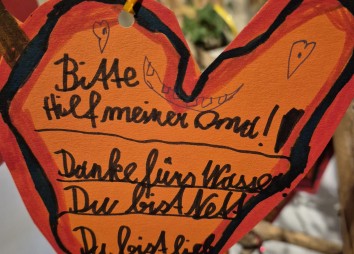 Bitte
Hilf meiner Oma!!
Danke fürs Wasser
Du bist Nett
Du bist lieb